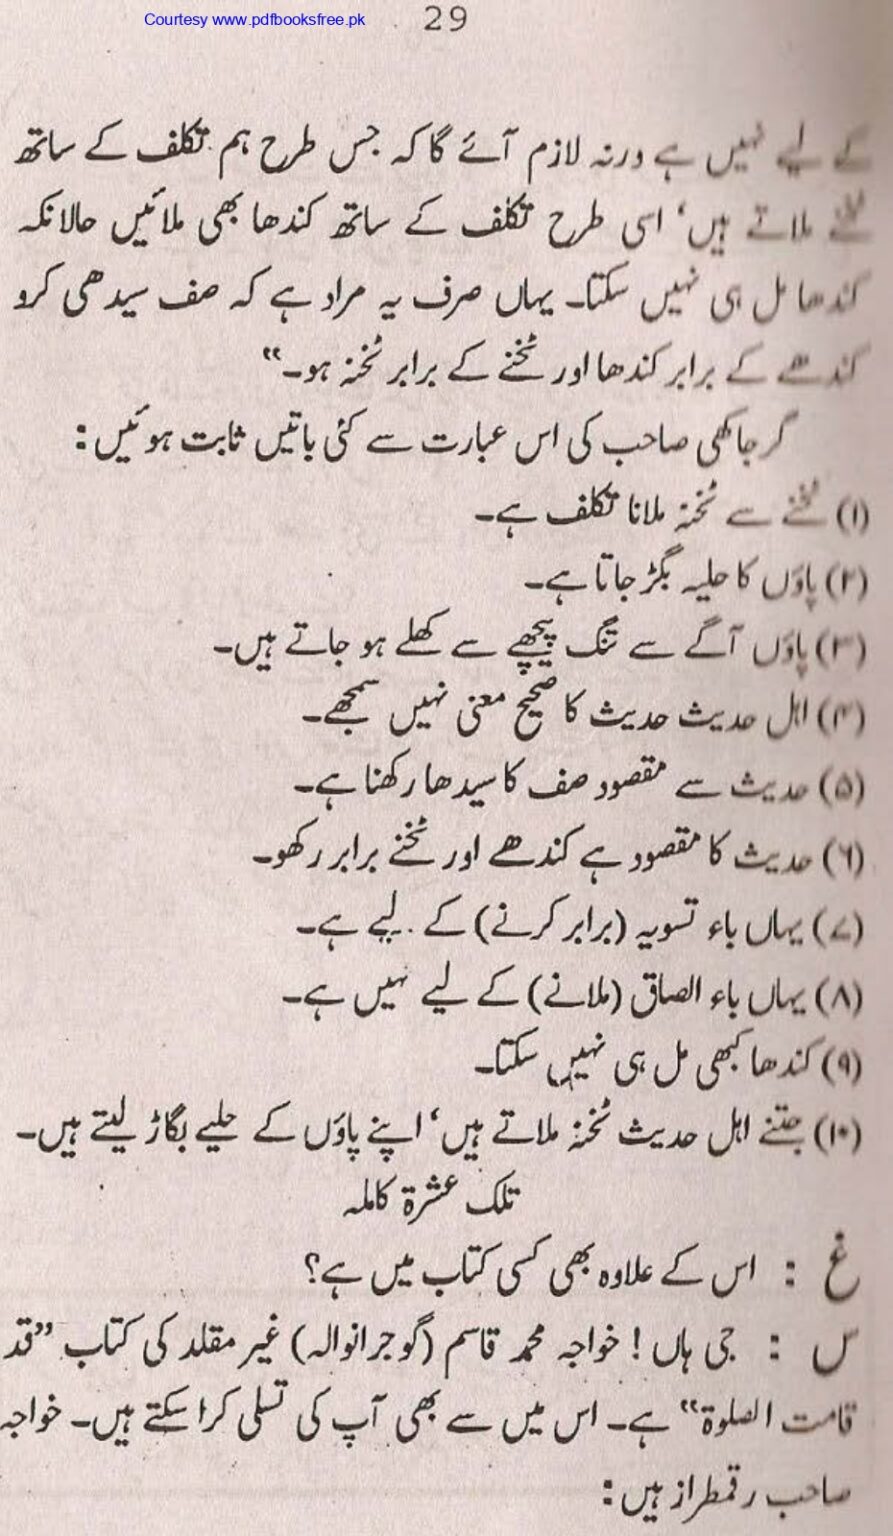 Courtesy www.pdfbooksfree.pk
29
کے لیے نہیں ہے ورنہ لازم آئے گا کہ جس طرح ہم تکلف کے ساتھ
ٹخنے ملاتے ہیں‘ اسی طرح تکلف کے ساتھ کندھا بھی ملائیں حالانکہ
کندھا مل ہی نہیں سکتا۔ یہاں صرف یہ مراد ہے کہ صف سیدھی کرو
کندھے کے برابر کندھا اور ٹخنے کے برابر ٹخنہ ہو۔“
گرجاکھی صاحب کی اس عبارت سے کئی باتیں ثابت ہوئیں:
(۱) ٹخنے سے ٹخنہ ملانا تکلف ہے۔
(۲) پاؤں کا حلیہ بگڑ جاتا ہے۔
(۳) پاؤں آگے سے تنگ پیچھے سے کھلے ہو جاتے ہیں۔
(۴) اہل حدیث حدیث کا صحیح معنی نہیں سمجھے۔
(۵) حدیث سے مقصود صف کا سیدھا رکھنا ہے۔
(۶) حدیث کا مقصود ہے کندھے اور ٹخنے برابر رکھو۔
(۷) یہاں باء تسویہ (برابر کرنے) کے لیے ہے۔
(۸) یہاں باء الصاق (ملانے) کے لیے نہیں ہے۔
(۹) کندھا کبھی مل ہی نہیں سکتا۔
(۱۰) جتنے اہل حدیث ٹخنہ ملاتے ہیں‘ اپنے پاؤں کے حلیے بگاڑ لیتے ہیں۔
تلک عشرۃ کاملہ
غ : اس کے علاوہ بھی کسی کتاب میں ہے؟
س : جی ہاں! خواجہ محمد قاسم (گوجرانوالہ) غیر مقلد کی کتاب ”قد
قامت الصلوۃ“ ہے۔ اس میں سے بھی آپ کی تسلی کرا سکتے ہیں۔ خواجہ
صاحب رقمطراز ہیں: